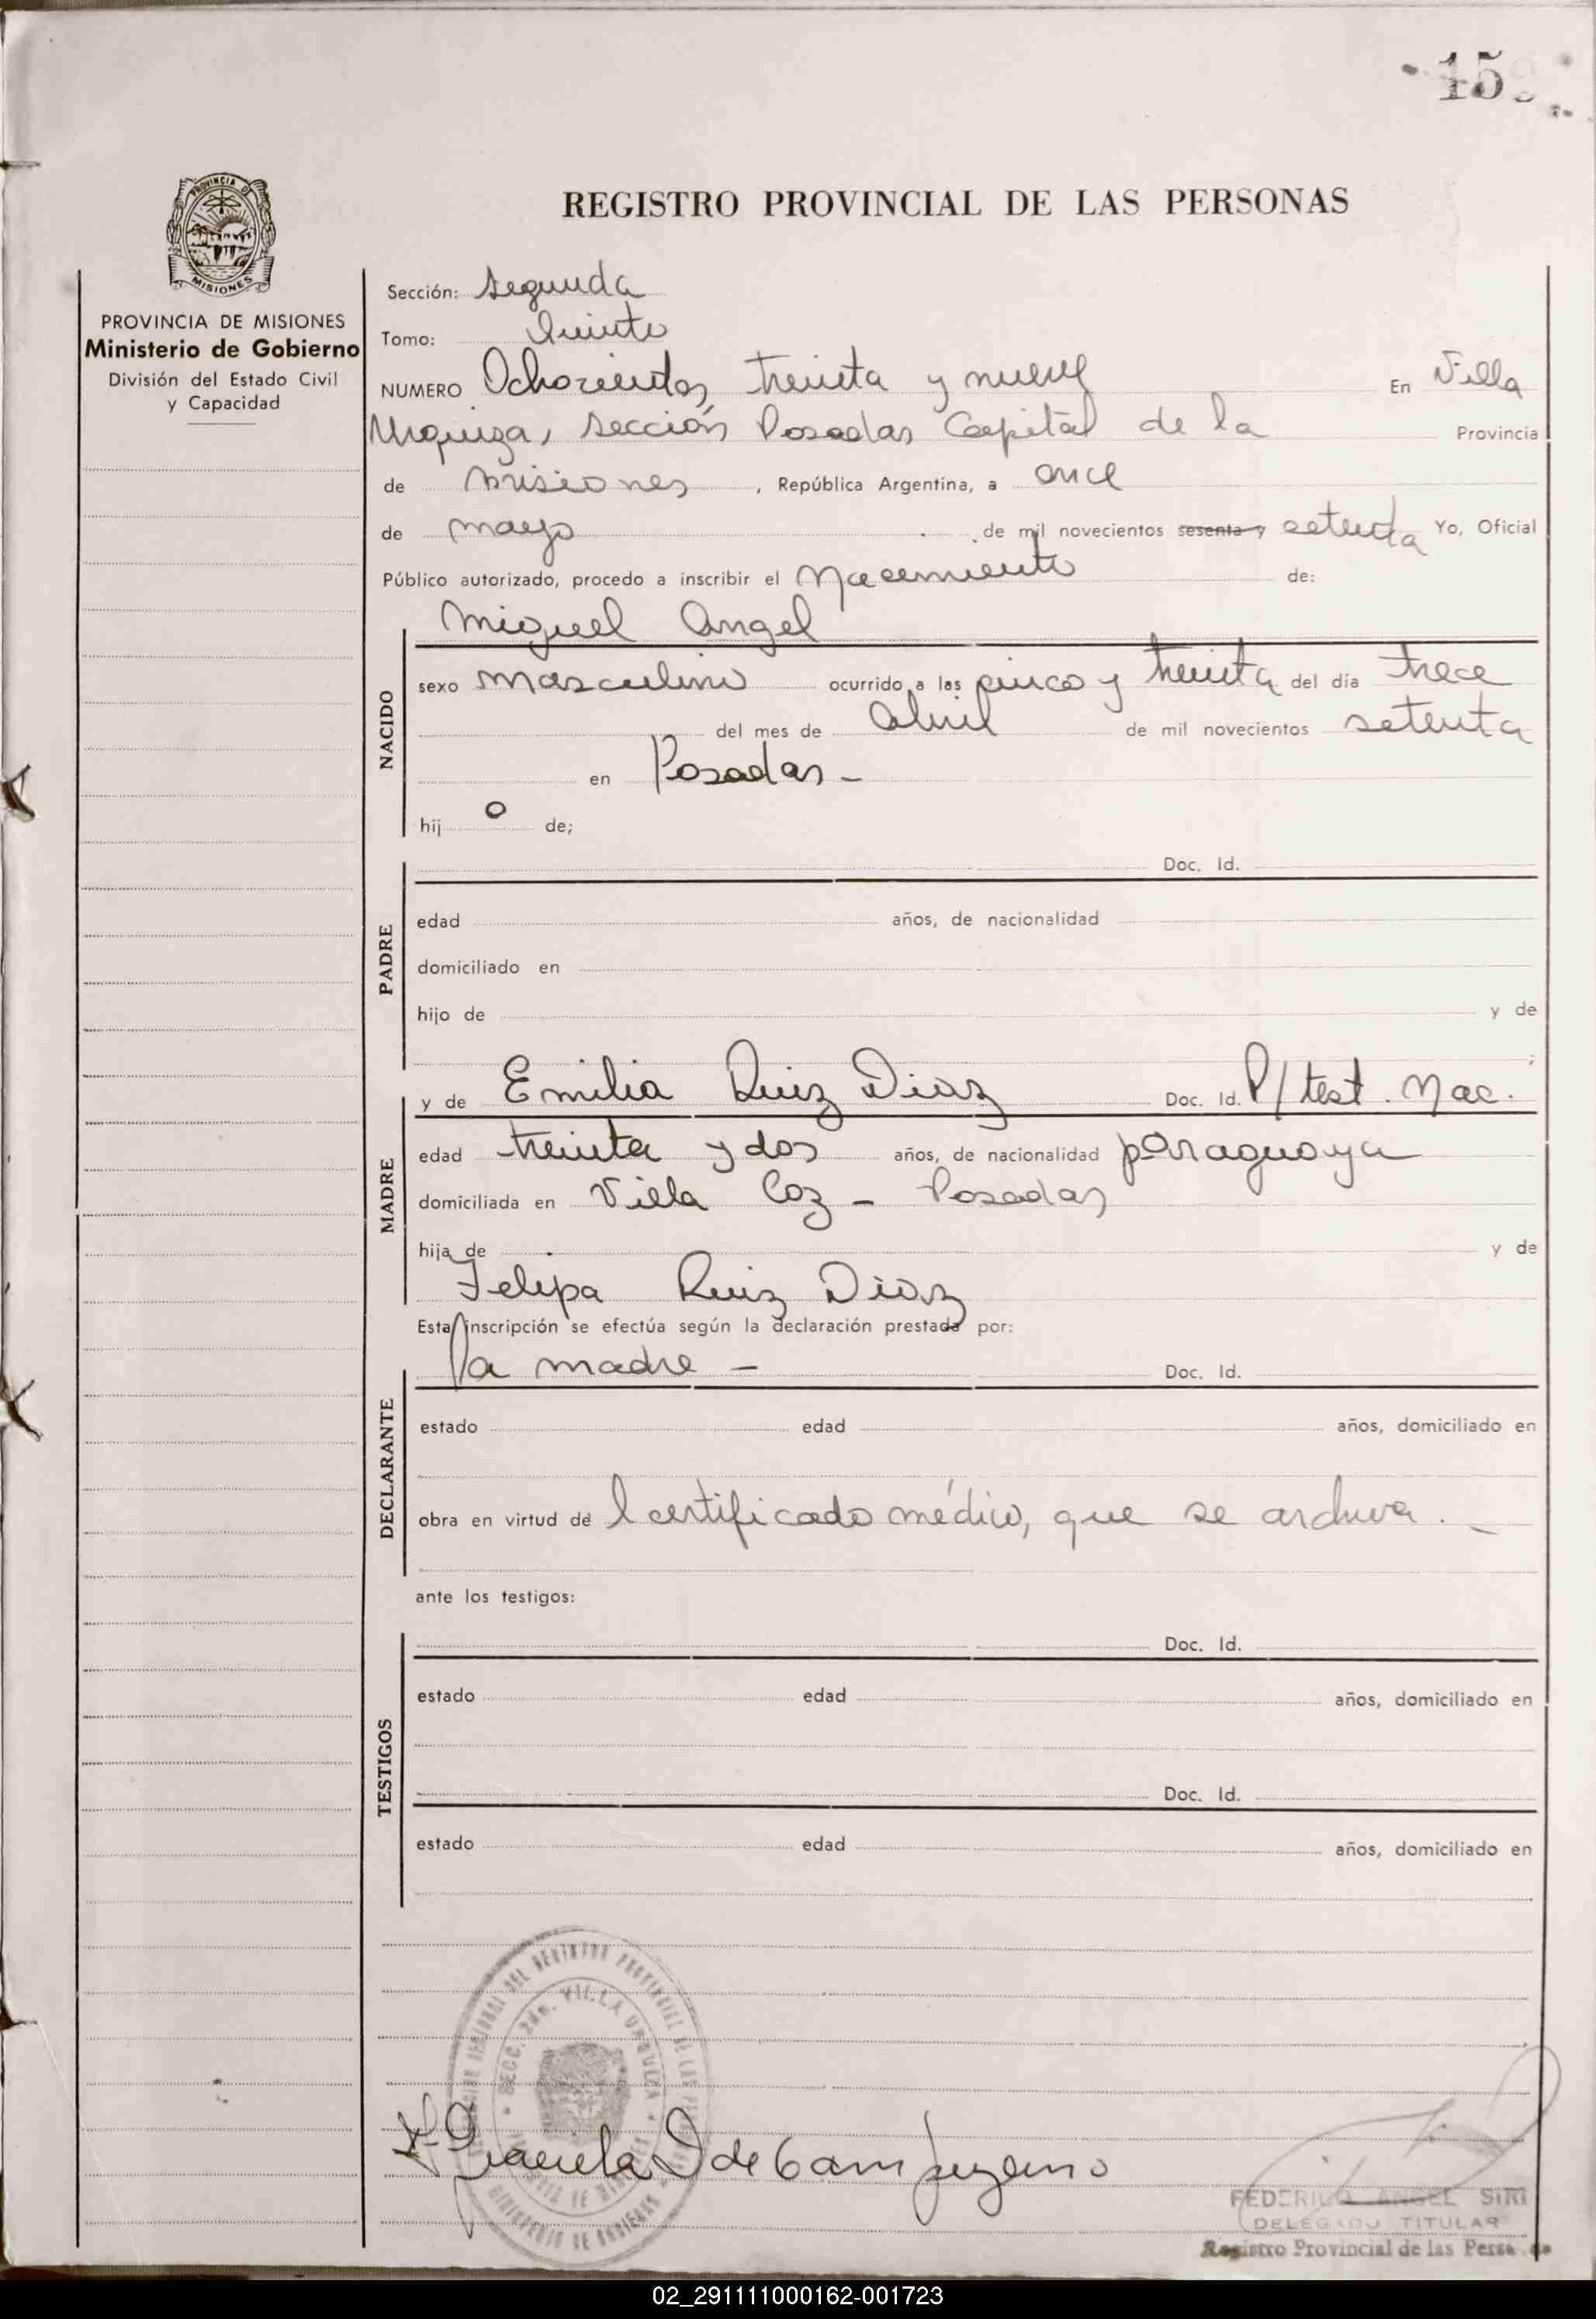 159
PROVINCIA DE MISIONES
PROVINCIA DE MISIONES
Ministerio de Gobierno
División del Estado Civil
y Capacidad
REGISTRO PROVINCIAL DE LAS PERSONAS
Sección: Segunda
Tomo: Quinto
NUMERO Ochocientos, treinta y nueve En Villa
Urquiza, Sección Posadas Capital de la Provincia
de Misiones, República Argentina, a once
de mayo de mil novecientos sesenta y setenta Yo, Oficial
Público autorizado, procedo a inscribir el Nacemiento de:
Miguel Angel
NACIDO
sexo masculino ocurrido a las cinco y treinta del día trece
del mes de Abril de mil novecientos setenta
en Posadas -
hij o de;
PADRE
Doc. Id.
edad años, de nacionalidad
domiciliado en
hijo de y de
;
MADRE
y de Emilia Ruiz Diaz Doc. Id. P/test. Nac.
edad treinta y dos años, de nacionalidad paraguaya
domiciliada en Villa Coz - Posadas
hija de y de
Felipa Ruiz Diaz
Esta inscripción se efectúa según la declaración prestada por:
DECLARANTE
la madre - Doc. Id.
estado edad años, domiciliado en
obra en virtud de l certificado médico, que se archiva. -
ante los testigos:
TESTIGOS
Doc. Id.
estado edad años, domiciliado en
Doc. Id.
estado edad años, domiciliado en
DEL REGISTRO PROVINCIAL DE LAS
SECC. 2da. VILLA URQUIZA
MINISTERIO DE GOBIERNO
de
FEDERICO ANGEL SIRI
DELEGADO TITULAR
Registro Provincial de las Persa
02_291111000162-001723